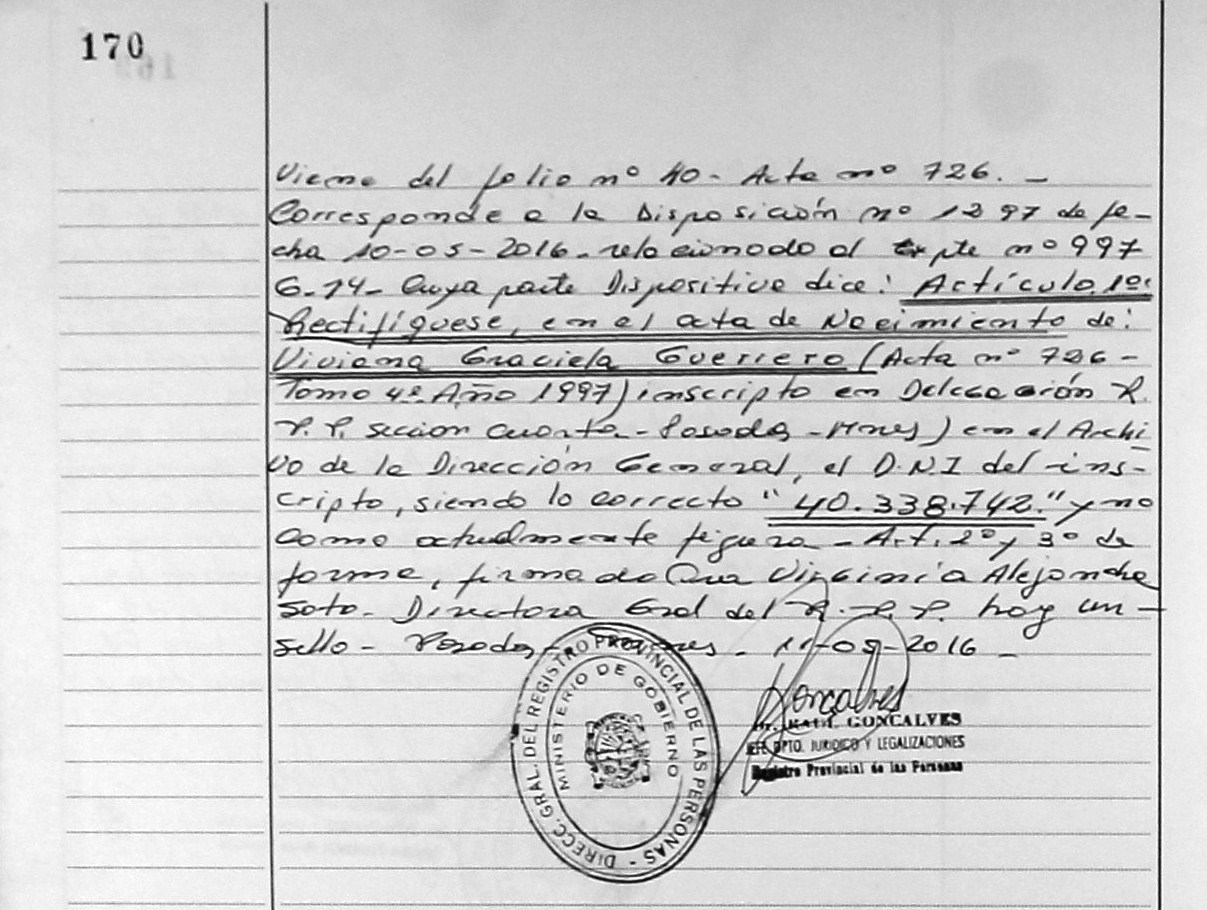 170
Viene del folio nº 40 - Acta nº 726. -
Corresponde a la Disposición nº 1297 de fe-
cha 10-05-2016. relacionado al Expte nº 997
G-14- Cuya parte Dispositiva dice: Artículo 1º:
Rectifíquese, en el acta de Nacimiento de:
Viviana Graciela Guerrero (Acta nº 726 -
Tomo 4º Año 1997) inscripto en Delegación R.
P. P. sección cuarta - Posadas - Mnes) en el Archi
vo de la Dirección General, el D.N.I del ins-
cripto, siendo lo correcto "40.338.742." y no
como actualmente figura - Art. 2º y 3º de
forma, firmado Dra Virginia Alejandra
Soto - Directora Gral del R. P. P. hay un
sello - Posadas - 11-05-2016 -
DIRECC. GRAL. DEL REGISTRO PROVINCIAL DE LAS PERSONAS -
MINISTERIO DE GOBIERNO
Goncalves
RAUL GONCALVES
JEFE DPTO. JURIDICO Y LEGALIZACIONES
Registro Provincial de las Personas